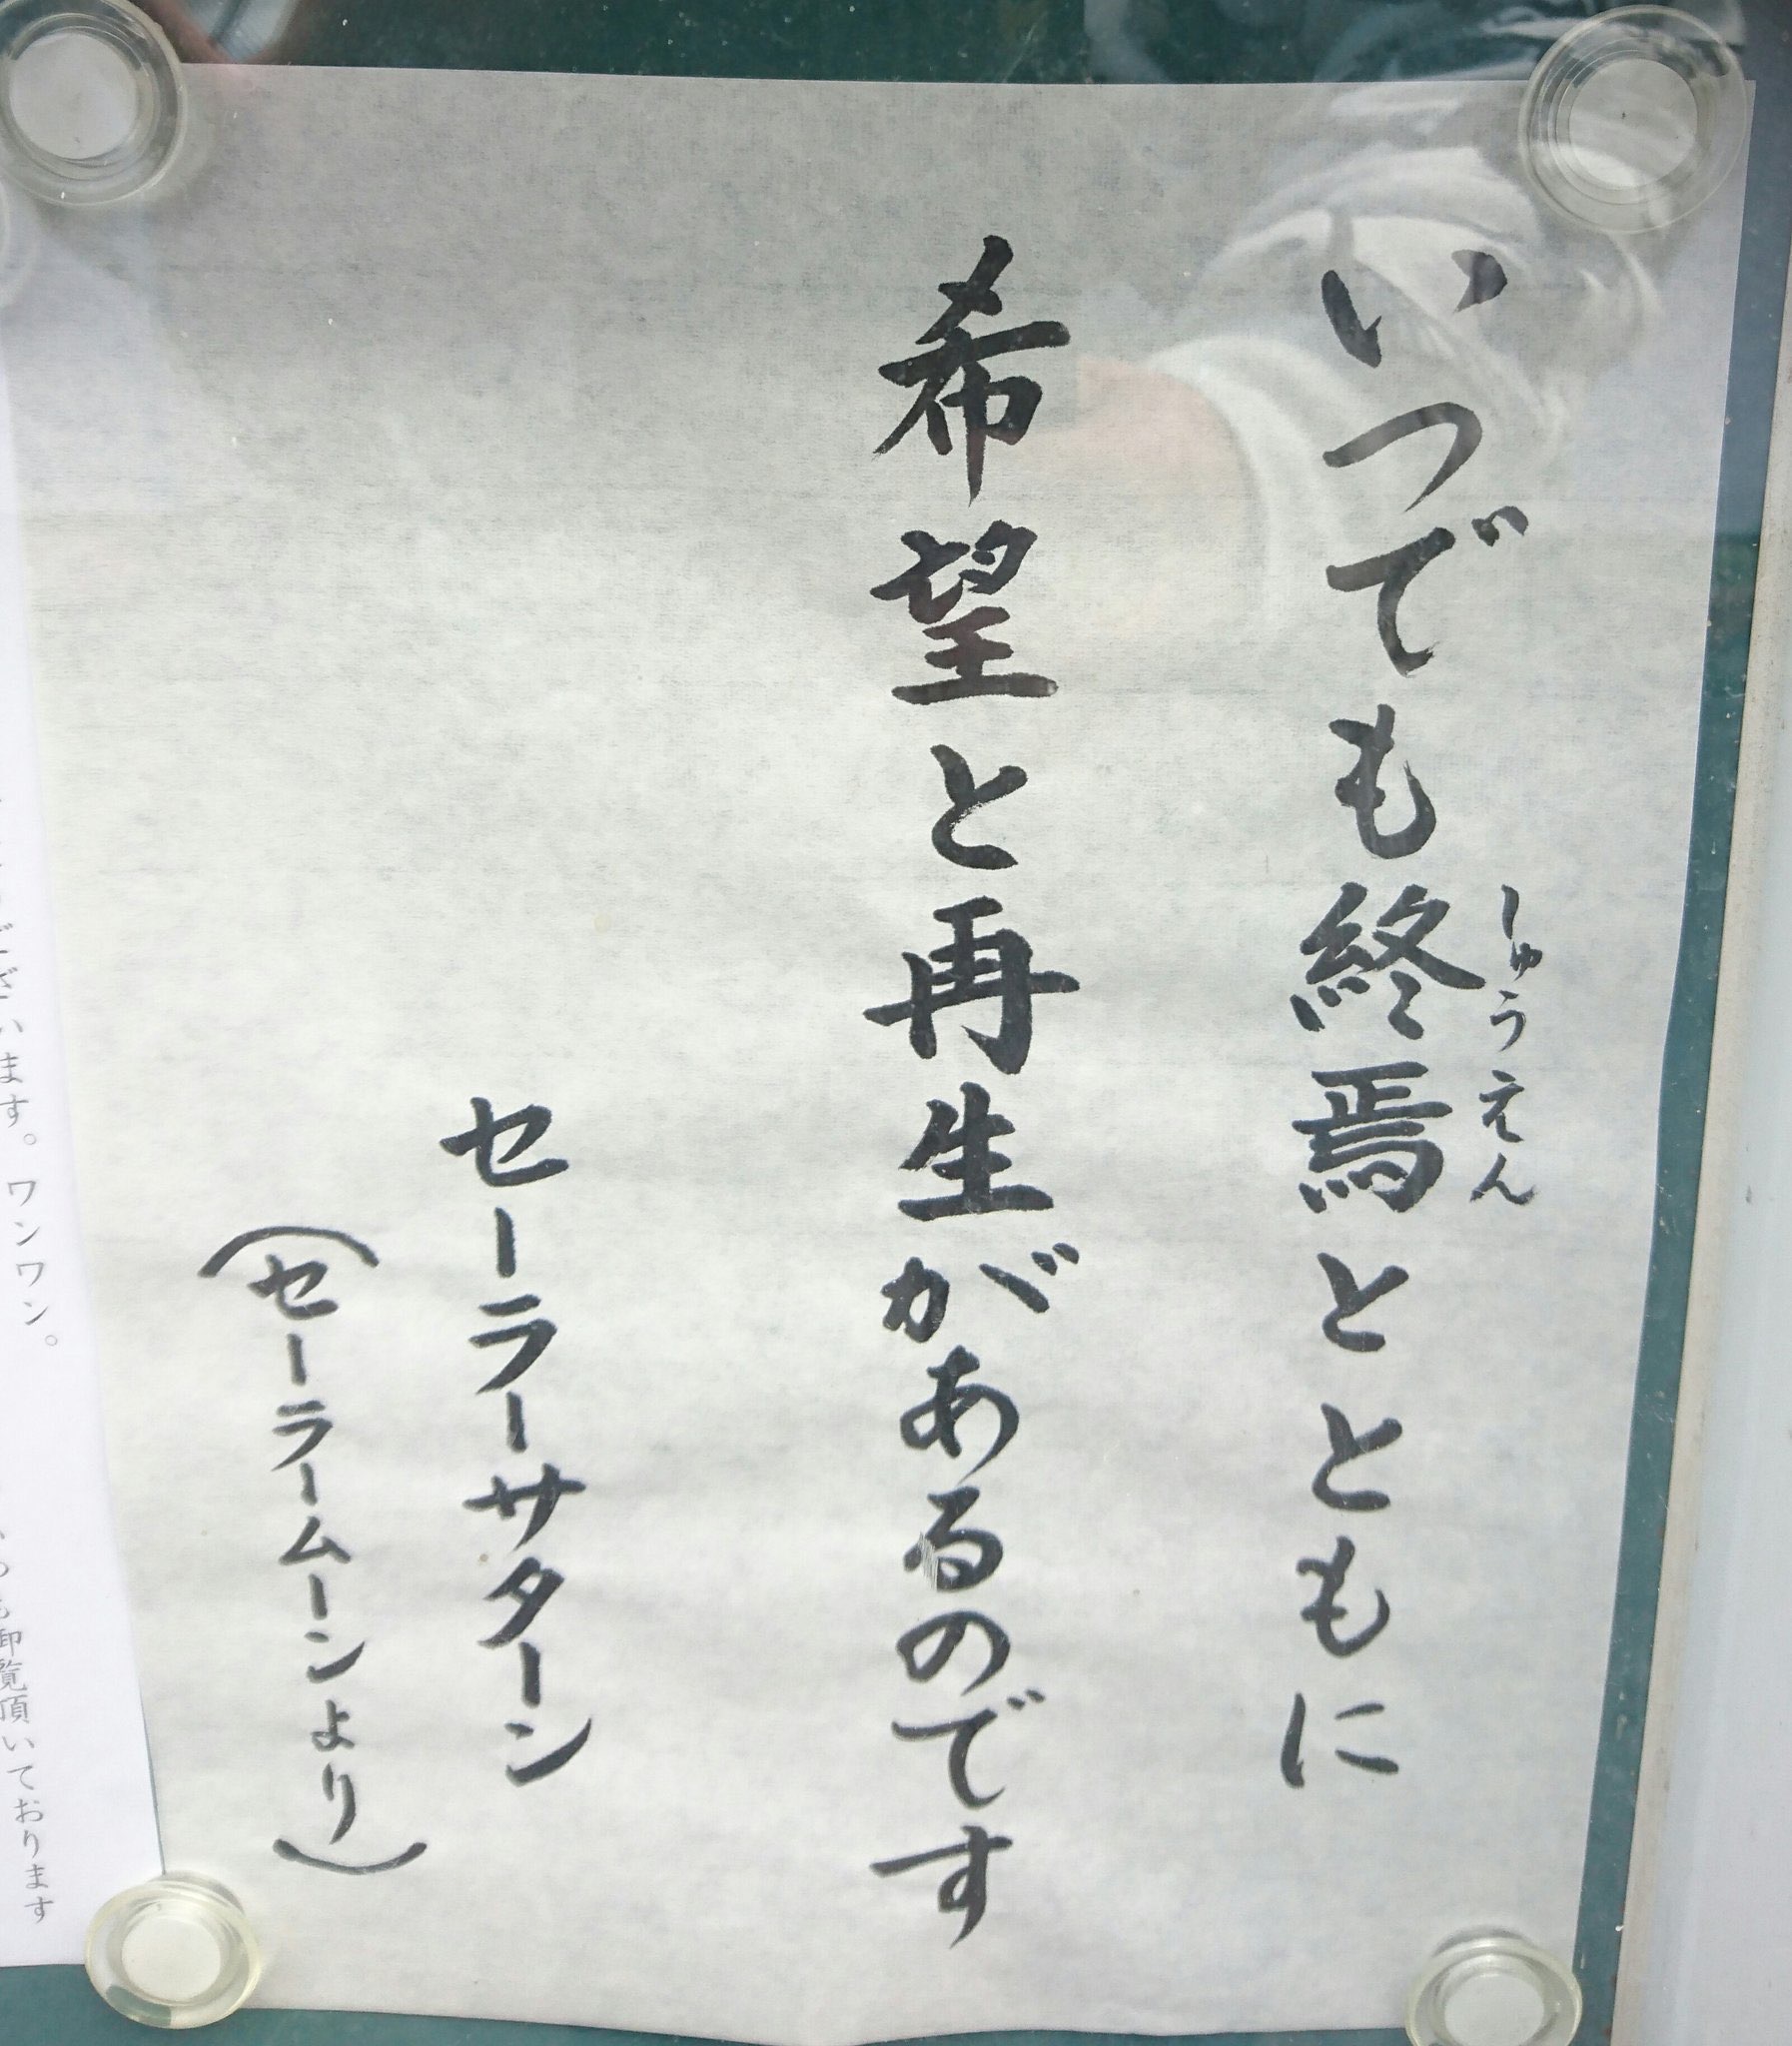 いつでも終焉とともに
しゅうえん
希望と再生があるのです
セーラーサターン
（セーラームーンより）
ございます。ワンワン。
御覧頂いております